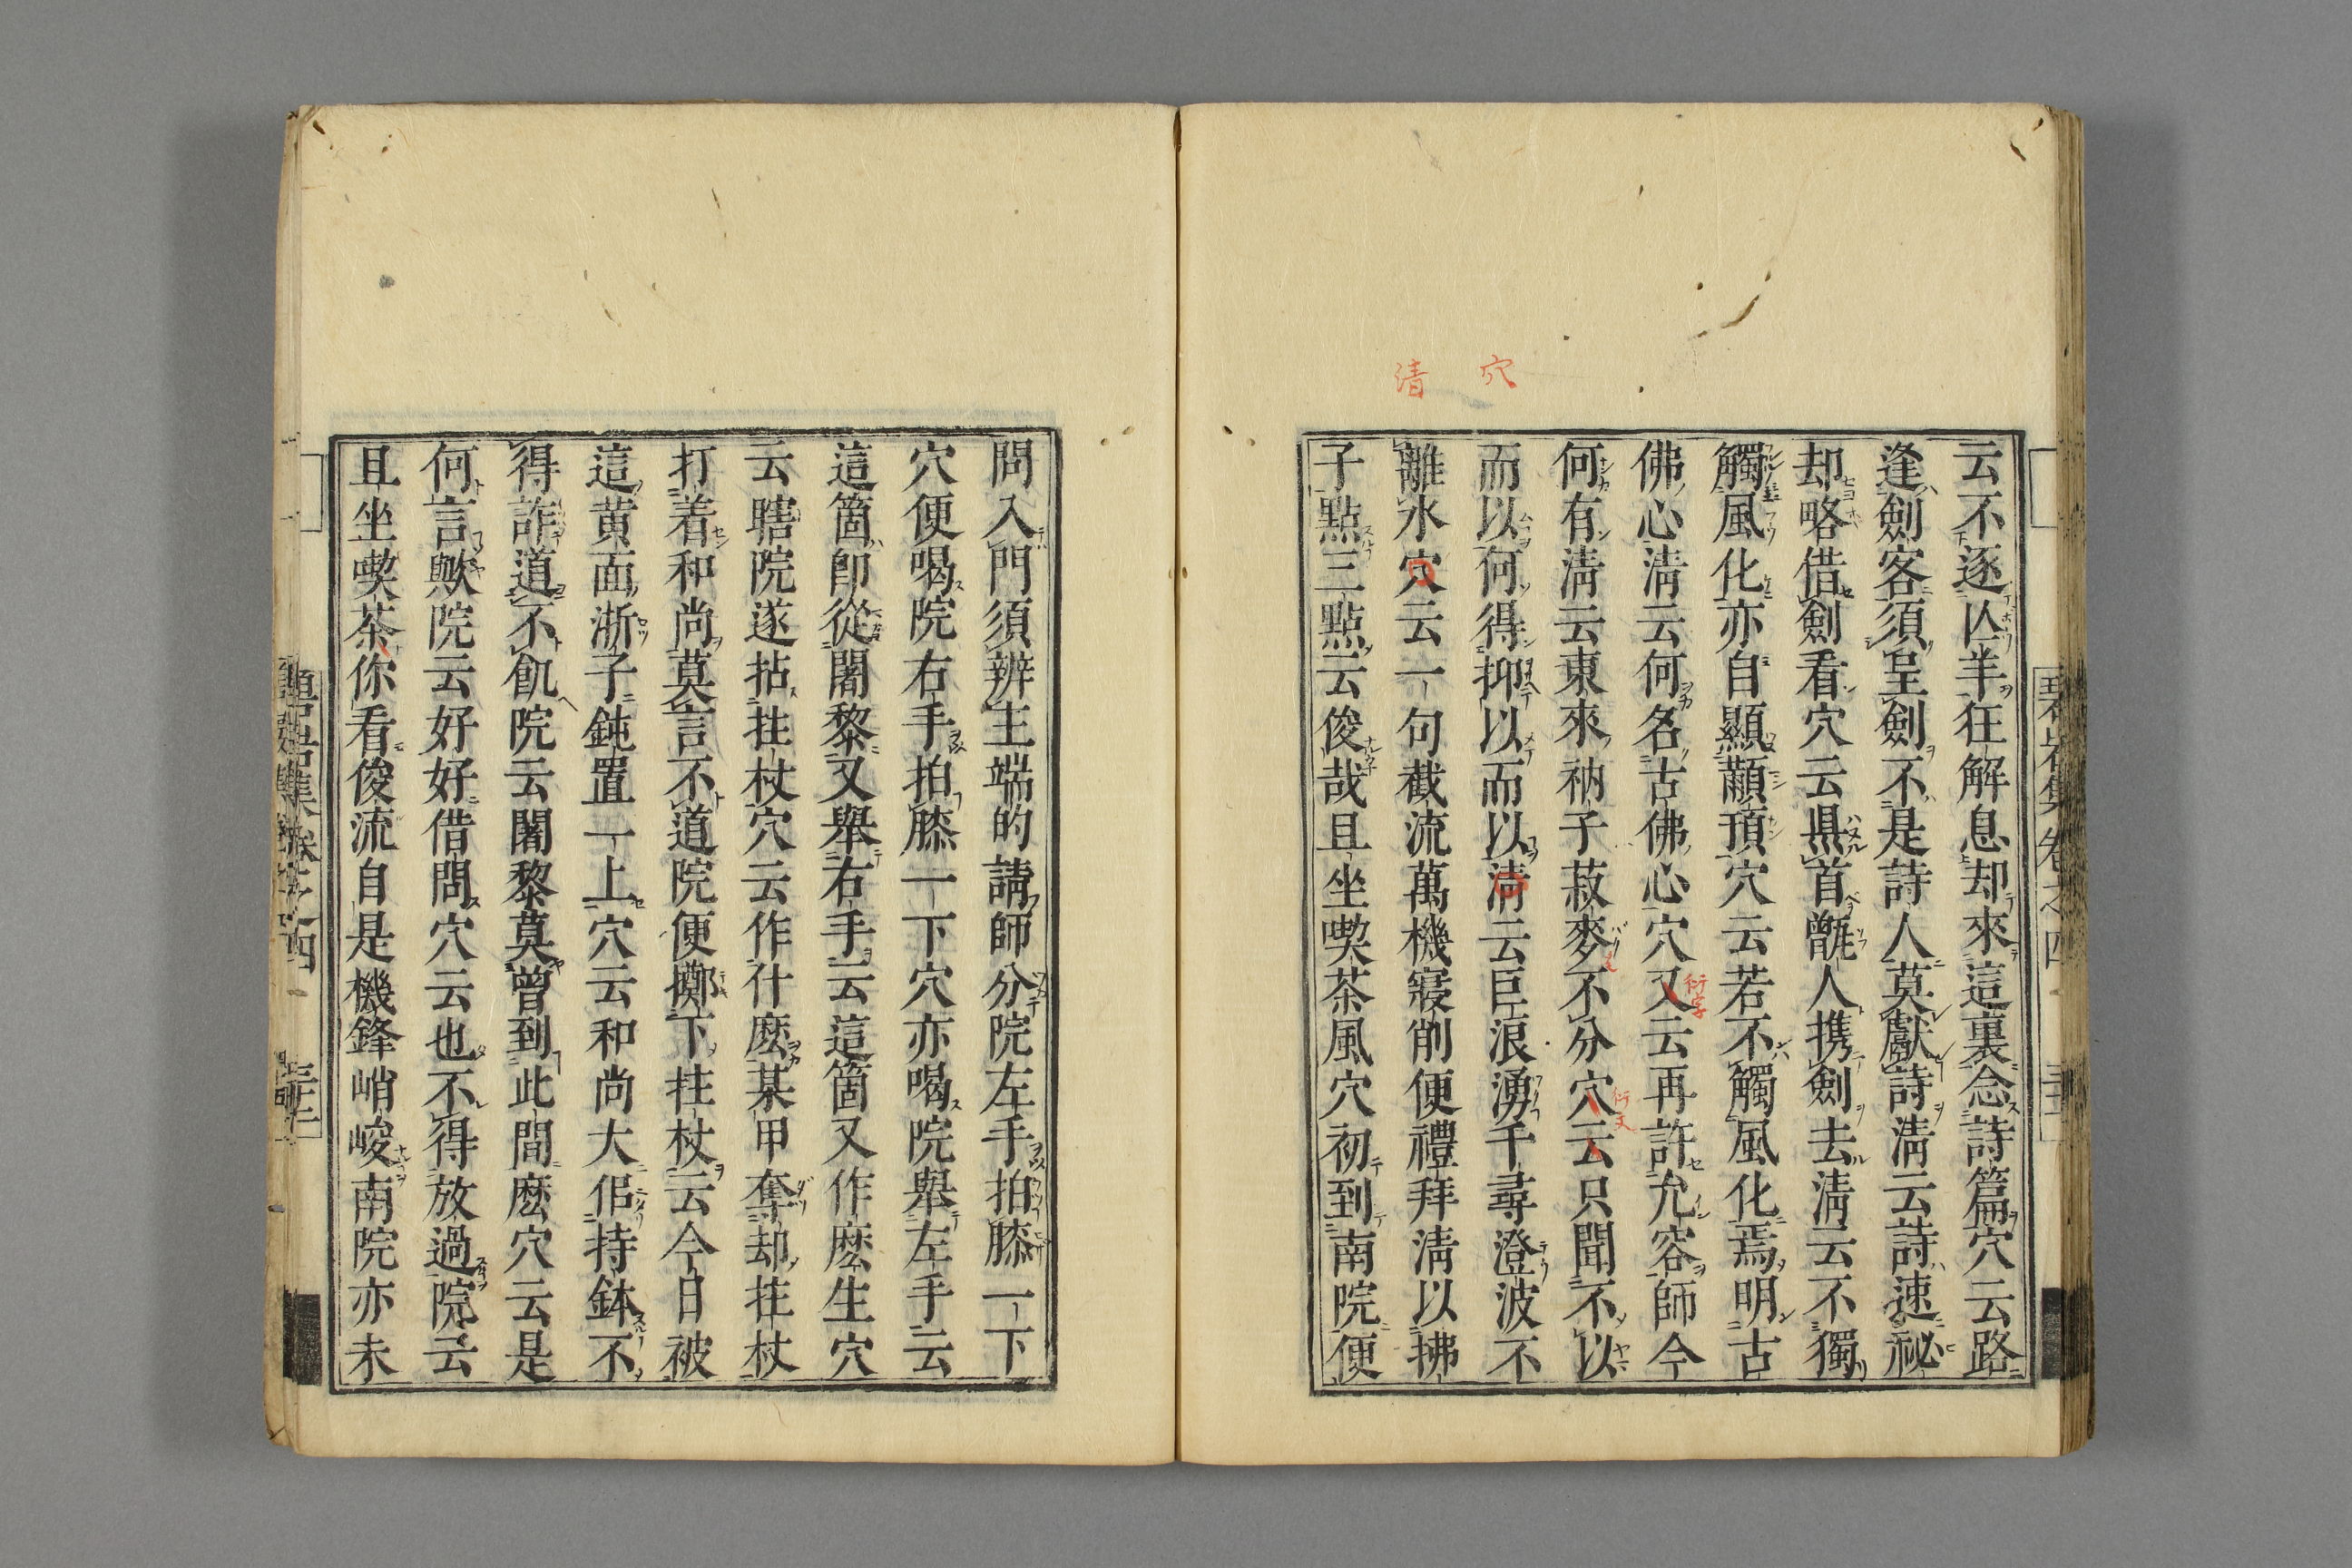 穴
清
云不逐亾羊狂解息却來這裏念詩篇穴云路
逢劍客須呈劍不是詩人莫獻詩淸云詩速祕
却略借劍看穴云県首甑人携劍去淸云不獨
觸風化亦自顯顢頇穴云若不觸風化焉明古
佛心淸云何名古佛心穴又云再許允容師今
何有淸云東來衲子菽麥不分穴云只聞不以
而以何得抑以而以淸云巨浪湧千尋澄波不
離水穴云一句截流萬機寢削便禮拜淸以拂
子點三點云俊哉且坐喫茶風穴初到南院便
衍字
衍文
問入門須辨主端的請師分院左手拍膝一下
穴便喝院右手拍膝一下穴亦喝院舉左手云
這箇卽從闍黎又舉右手云這箇又作麽生穴
云瞎院遂拈拄杖穴云作什麽某甲奪却拄杖
打着和尚莫言不道院便擲下拄杖云今日被
這黄面浙子鈍置一上穴云和尚大佀持鉢不
得詐道不飢院云闍黎莫曾到此間麽穴云是
何言歟院云好好借問穴云也不得放過院云
且坐喫茶你看俊流自是機鋒峭峻南院亦未